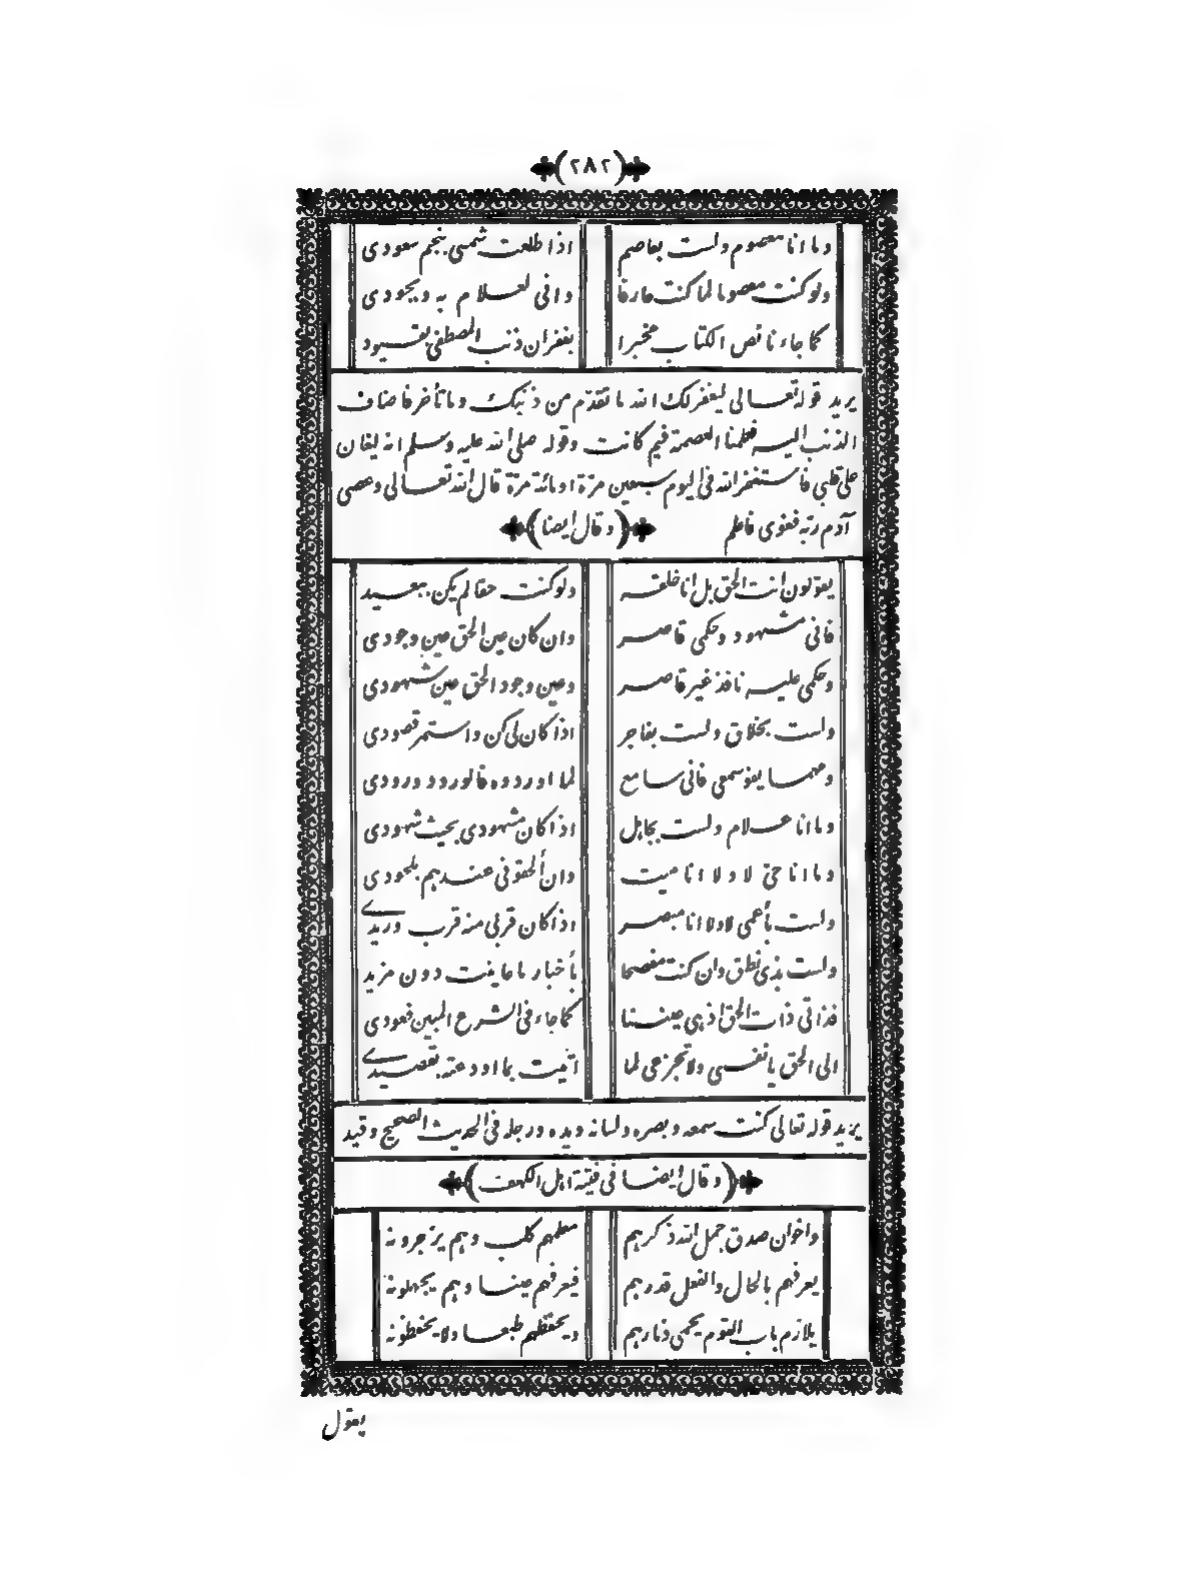 (٢٨٢)
وما انا معصوم ولست بعاصم اذا طلعت شمسى بنجم سعودى
ولو كنت معصوما لما كنت عارفا وانى لعلام به وبجودى
كما جاء نا نص الكتاب مخبرا بغفران ذنب المصطفى بقيود
يريد قوله تعالى ليغفر لك الله ما تقدّم من ذنبك وما تأخر فاضاف
الذنب اليه فعلمنا العصمة فيم كانت وقوله صلى الله عليه وسلم انه ليغان
على قلبى فاستغفر الله فى اليوم سبعين مرّة او مائة مرّة قال الله تعالى وعصى
آدم ربّه فغوى فاعلم (وقال ايضا)
يقولون انت الحق بل انا خلقه ولو كنت حقا لم يكن ببعيد
فانى مشهود وحكمى قاصر وان كان عين الحق عين وجودى
وحكمى عليه نافذ غير قاصر وعين وجود الحق عين شهودى
ولست بخلاق ولست بفاجر اذا كان لى كن واستمر قصودى
ومهما يفو سمعى فانى سامع لما اوردوه فالورود ورودى
وما انا علام ولست بجاهل اذا كان مشهودى بحيث شهودى
وما انا حىّ لا ولا انا ميت وان ألحقونى عندهم بلحودى
ولست بأعمى لا ولا انا مبصر اذا كان قربى منه قرب وريدى
ولست بذى نطق وان كنت مفصحا بأخبار ما عاينت دون مزيد
فذاتى ذات الحق اذ هى عيننا كما جاء فى الشرع المبين فعودى
الى الحق يا نفسى ولا تجزعى لما اتيت بما اودعته بقصيدى
يريد قوله تعالى كنت سمعه وبصره ولسانه ويده ورجله فى الحديث الصحيح وقيد
(وقال ايضا فى فتية اهل الكهف)
واخوان صدق جمل الله ذكرهم معلمهم كلب وهم يزجرونه
يعرفهم بالحال والفعل قدرهم فيعرفهم عينا وهم يجهلونه
يلازم باب القوم يحمى ذمارهم ويحفظهم طبعا ولا يحفظونه
يقول